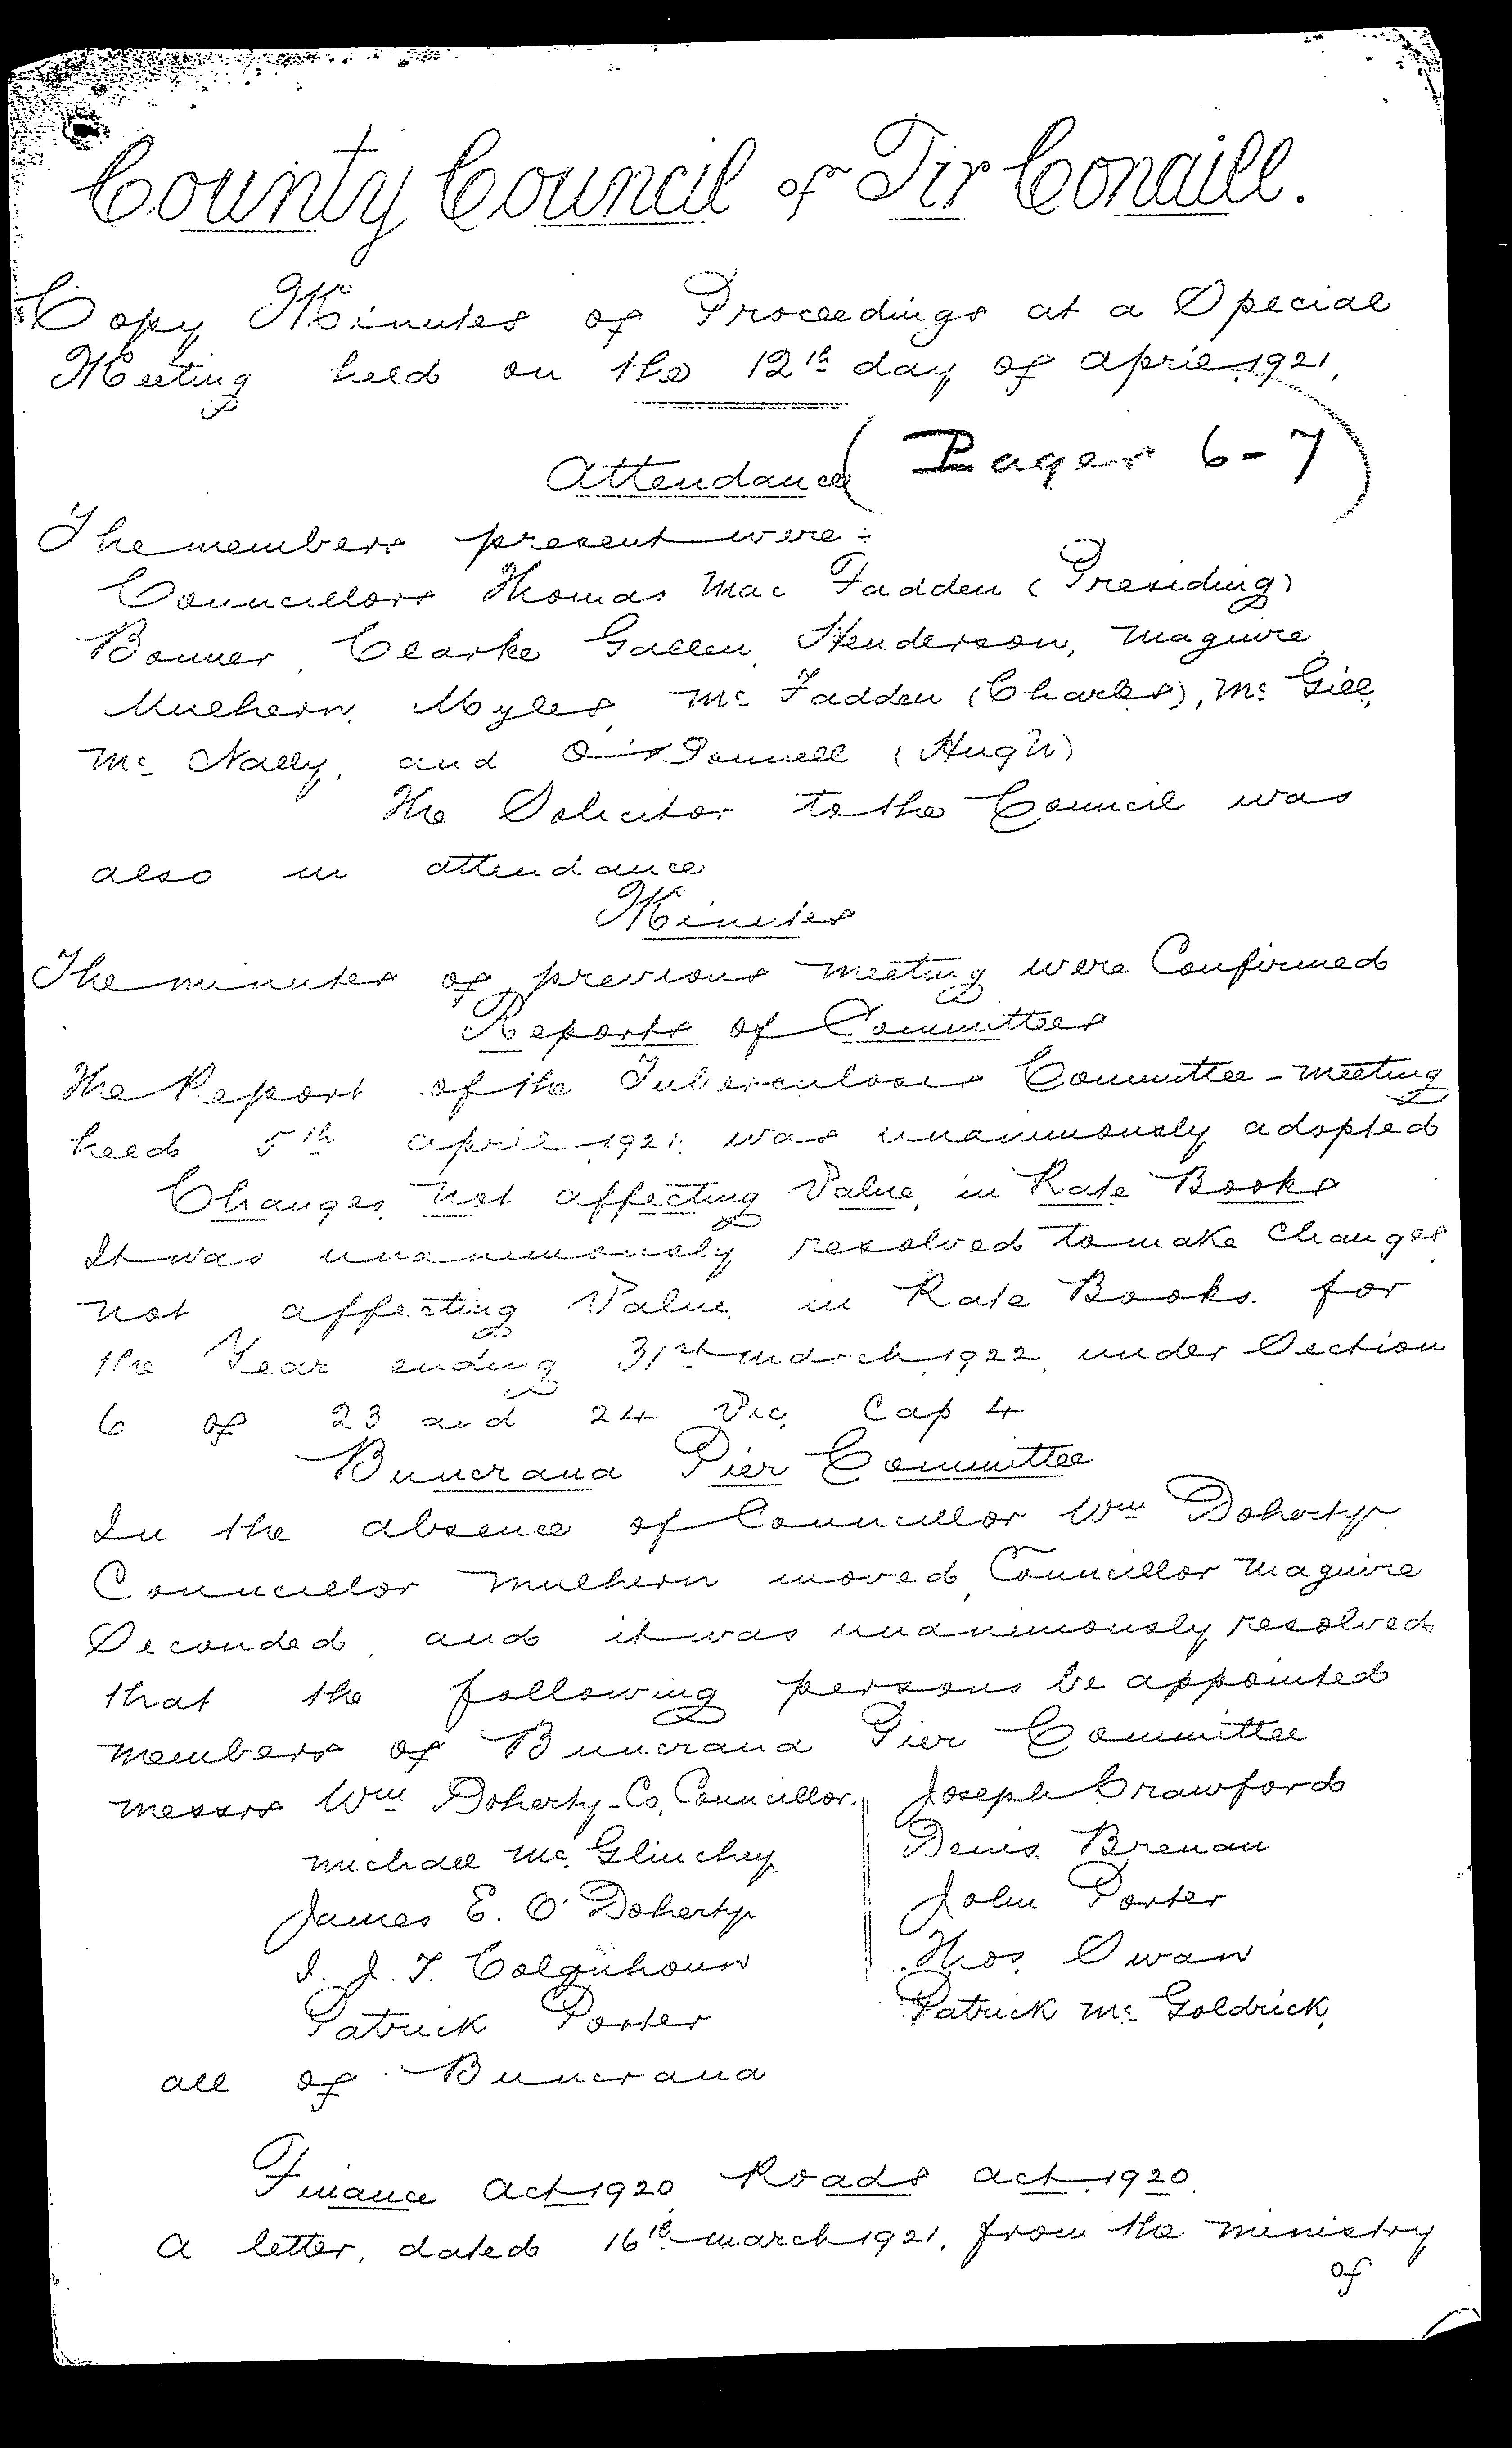 County Council of Tir Conaill.
Copy Minutes of Proceedings at a Special
Meeting held on the 12th day of april, 1921.
Attendance (Pages 6-7)
The members present were:
Councillors Thomas Mac Fadden (Presiding)
Bonner, Clarke Gallen, Henderson, Maguire,
Mulhern, Myles, Mc Fadden (Charles), Mc Gill,
Mc Nally, and O'Donnell (Hugh)
The Solicitor to the Council was
also in attendance
Minutes
The minutes of previous meeting were Confirmed
Reports of Committees
The Report of the Tuberculosis Committee - meeting
held 5th april 1921, was unanimously adopted
Changes not affecting Value, in Rate Books
It was unanimously resolved to make Changes
not affecting Value in Rate Books for
the Year ending 31st march 1922, under Section
6 of 23 and 24 Vic, Cap 4
Buncrana Pier Committee
In the absence of Councillor Wm Doherty
Councillor Mulhern moved, Councillor Maguire
Seconded, and it was unanimously resolved
that the following persons be appointed
members of Buncrana Pier Committee
messrs Wm Doherty - Co, Councillor, Joseph Crawford
michael Mc Glinchey Denis Brenan
James E. O'Doherty John Porter
J. T. Colquhoun Thos. Swan
Patrick Porter Patrick Mc Goldrick,
all of Buncrana
Finance act 1920, Roads act 1920.
a letter, dated 16th march 1921, from the ministry
of